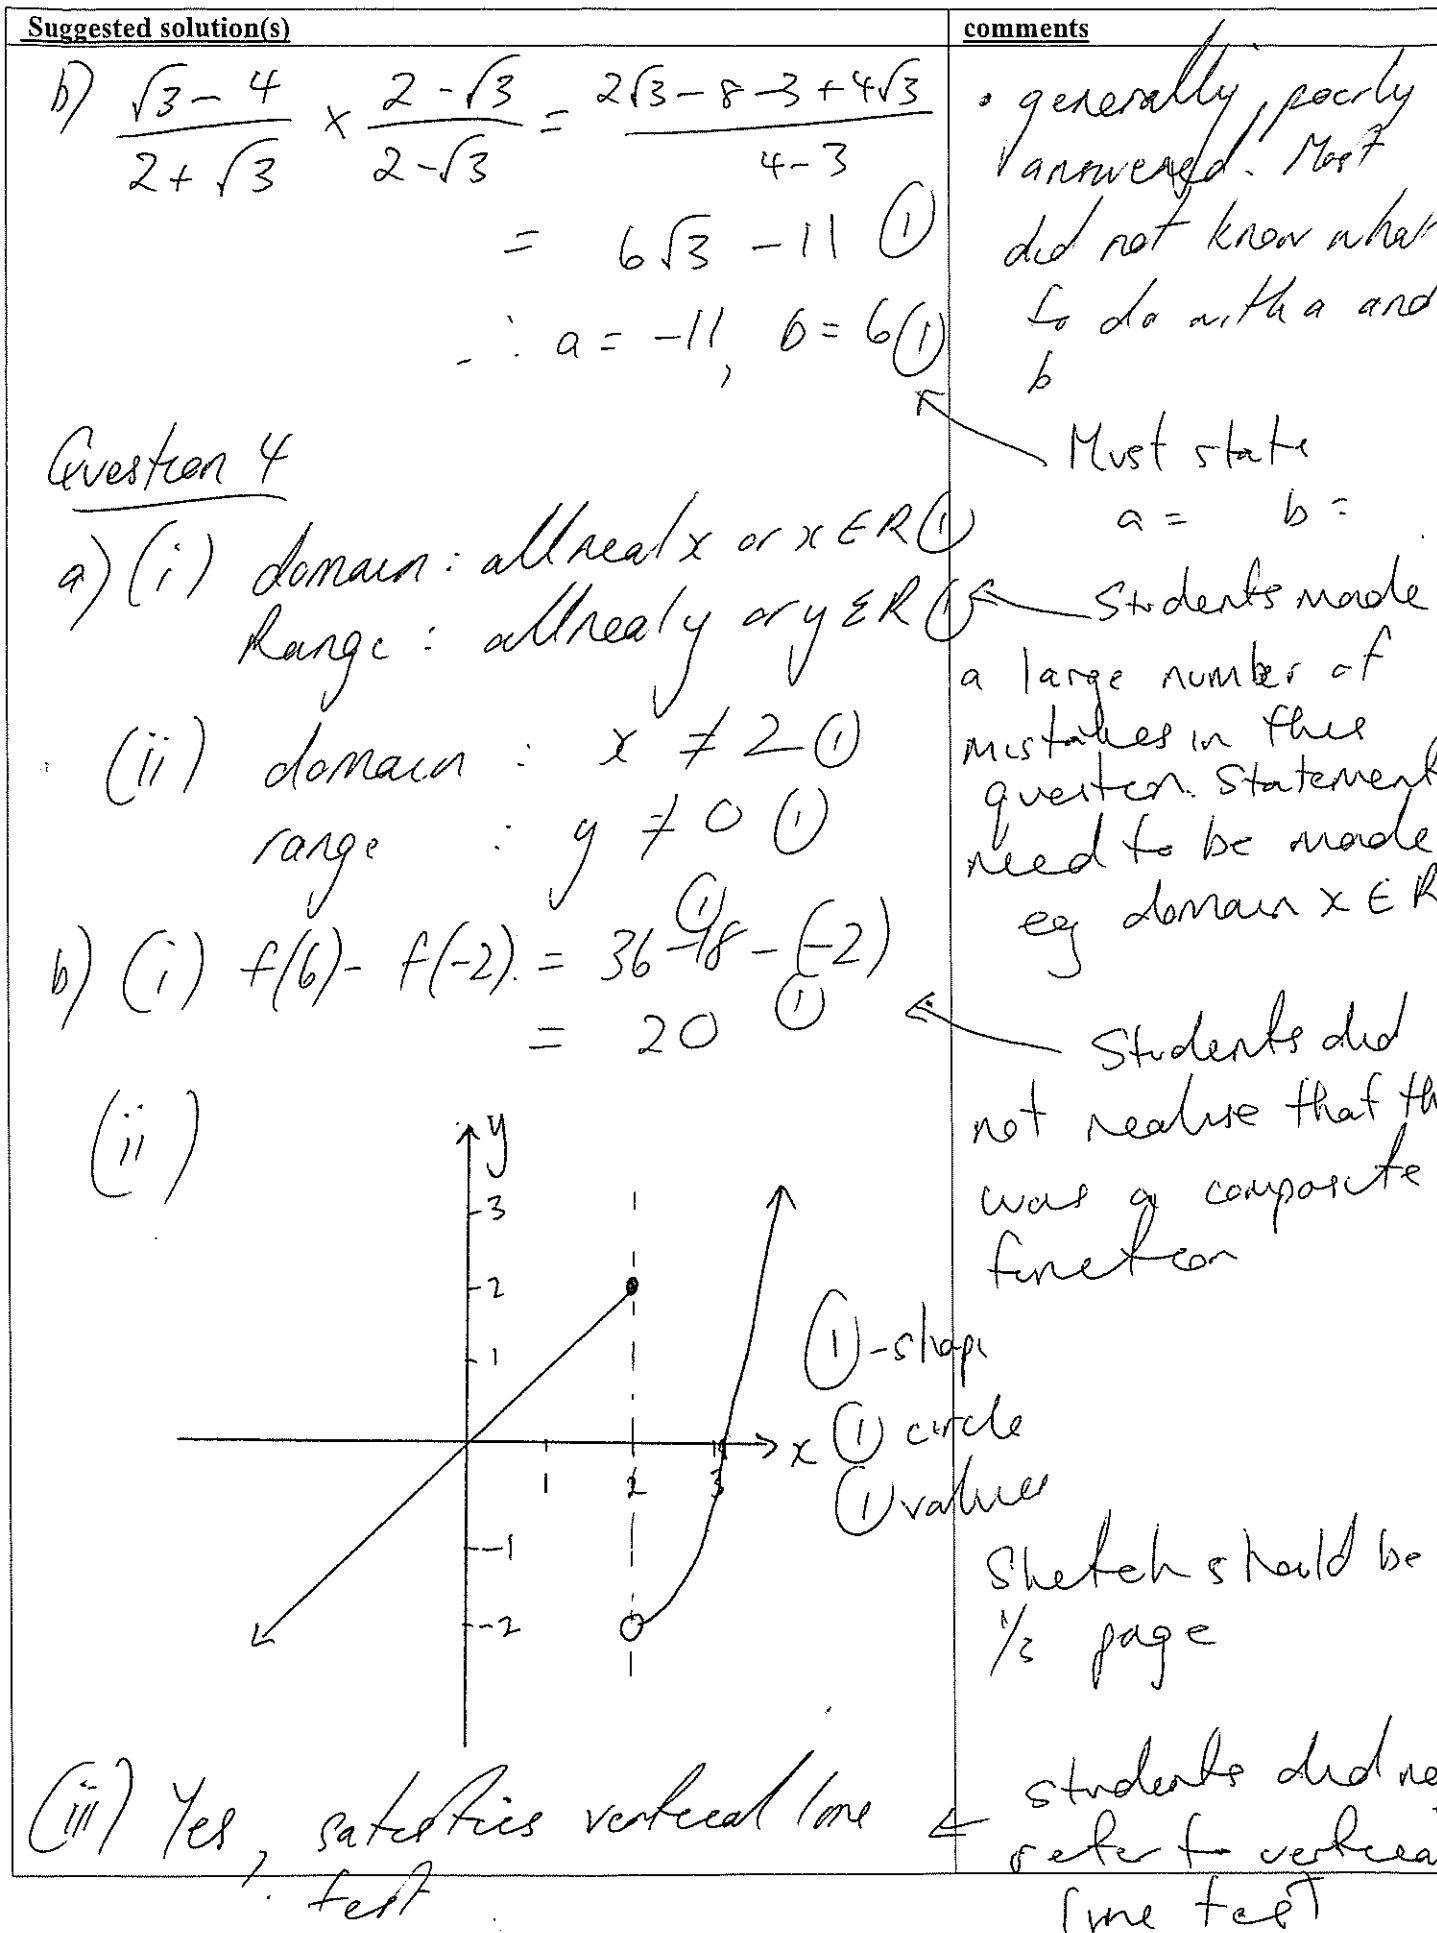 Suggested solution(s)
comments
b) (√3 - 4)/(2 + √3) × (2 - √3)/(2 - √3) = (2√3 - 8 - 3 + 4√3)/(4 - 3)
= 6√3 - 11 ①
∴ a = -11, b = 6 ①
Question 4
a) (i) domain: all real x or x ∈ R ①
Range: all real y or y ∈ R ①
(ii) domain : x ≠ 2 ①
range : y ≠ 0 ①
b) (i) f(6) - f(-2) = 36 - 18 - (-2) ①
= 20 ①
(ii)
y
3
2
1
x
1 2 3
-1
-2
① - shape
① circle
① values
(iii) Yes, satisfies vertical line
test
• generally, poorly
answered. Most
did not know what
to do with a and
b
Must state
a = b =
Students made
a large number of
mistakes in this
question. Statement
need to be made
eg domain x ∈ R
Students did
not realise that th
was a composite
function
Sketch should be
1/3 page
students did no
refer to vertica
line test